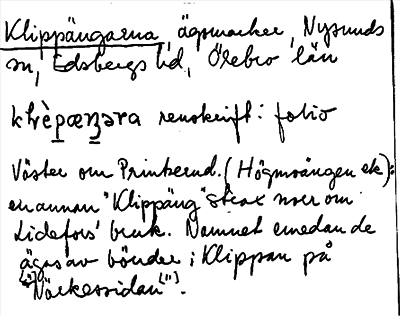 Klippängarna, ägomarker, Nysunds
sn, Edsbergs hd, Örebro län
renskrift: folio
Väster om Prinkerud. (Högmoängen etc):
en annan "Klippäng" strax norr om
Lidefors' bruk. Namnet emedan de
ägas av bönder i Klippan på
["]Närkessidan["].